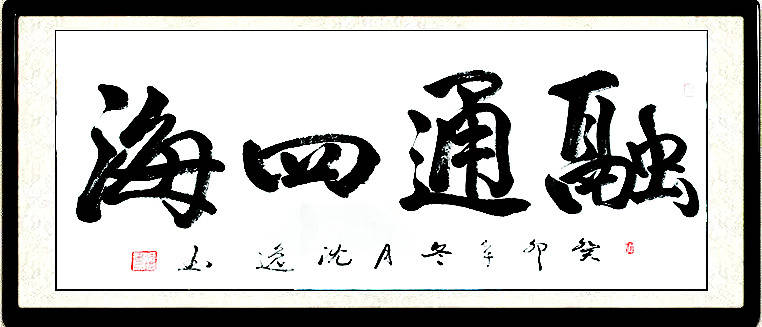 融通四海
癸卯年冬月沈逸